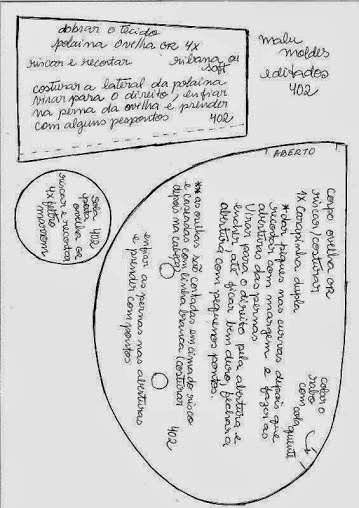 dobrar o tecido
polaina ovelha OR 4X
riscar e recortar ribana ou
soft
costurar a lateral da polaina
virar para o direito, enfiar
na perna da ovelha e prender
com alguns pespontos 402
malu
moldes
editados
402
ABERTO
Corpo ovelha OR
riscar/costurar
1X Carapinha dupla
*dar piques nas curvas, depois que
recortar com margem e fazer as
aberturas das pernas
Virar para o direito pela abertura e
encher até ficar bem duro, fechar a
abertura com pequenos pontos.
colar o
rabo
com cola quente
**as orelhas são cortadas em cima do risco
e caseadas com linha branca (costurar
depois na cabeça)
402
enfiar as pernas nas aberturas
e prender com pontos
sola 402
pata
ovelha OR
riscar e recortar
4X feltro
marrom